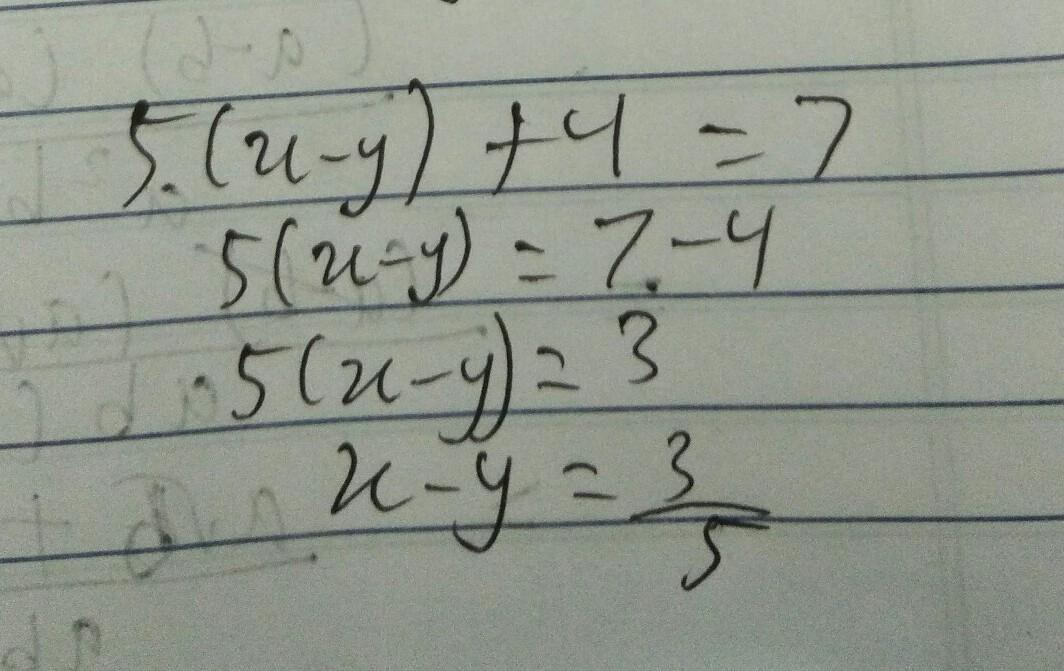 5.(x-y) + 4 = 7
5(x-y) = 7.-4
5(x-y) = 3
x-y = 3/5